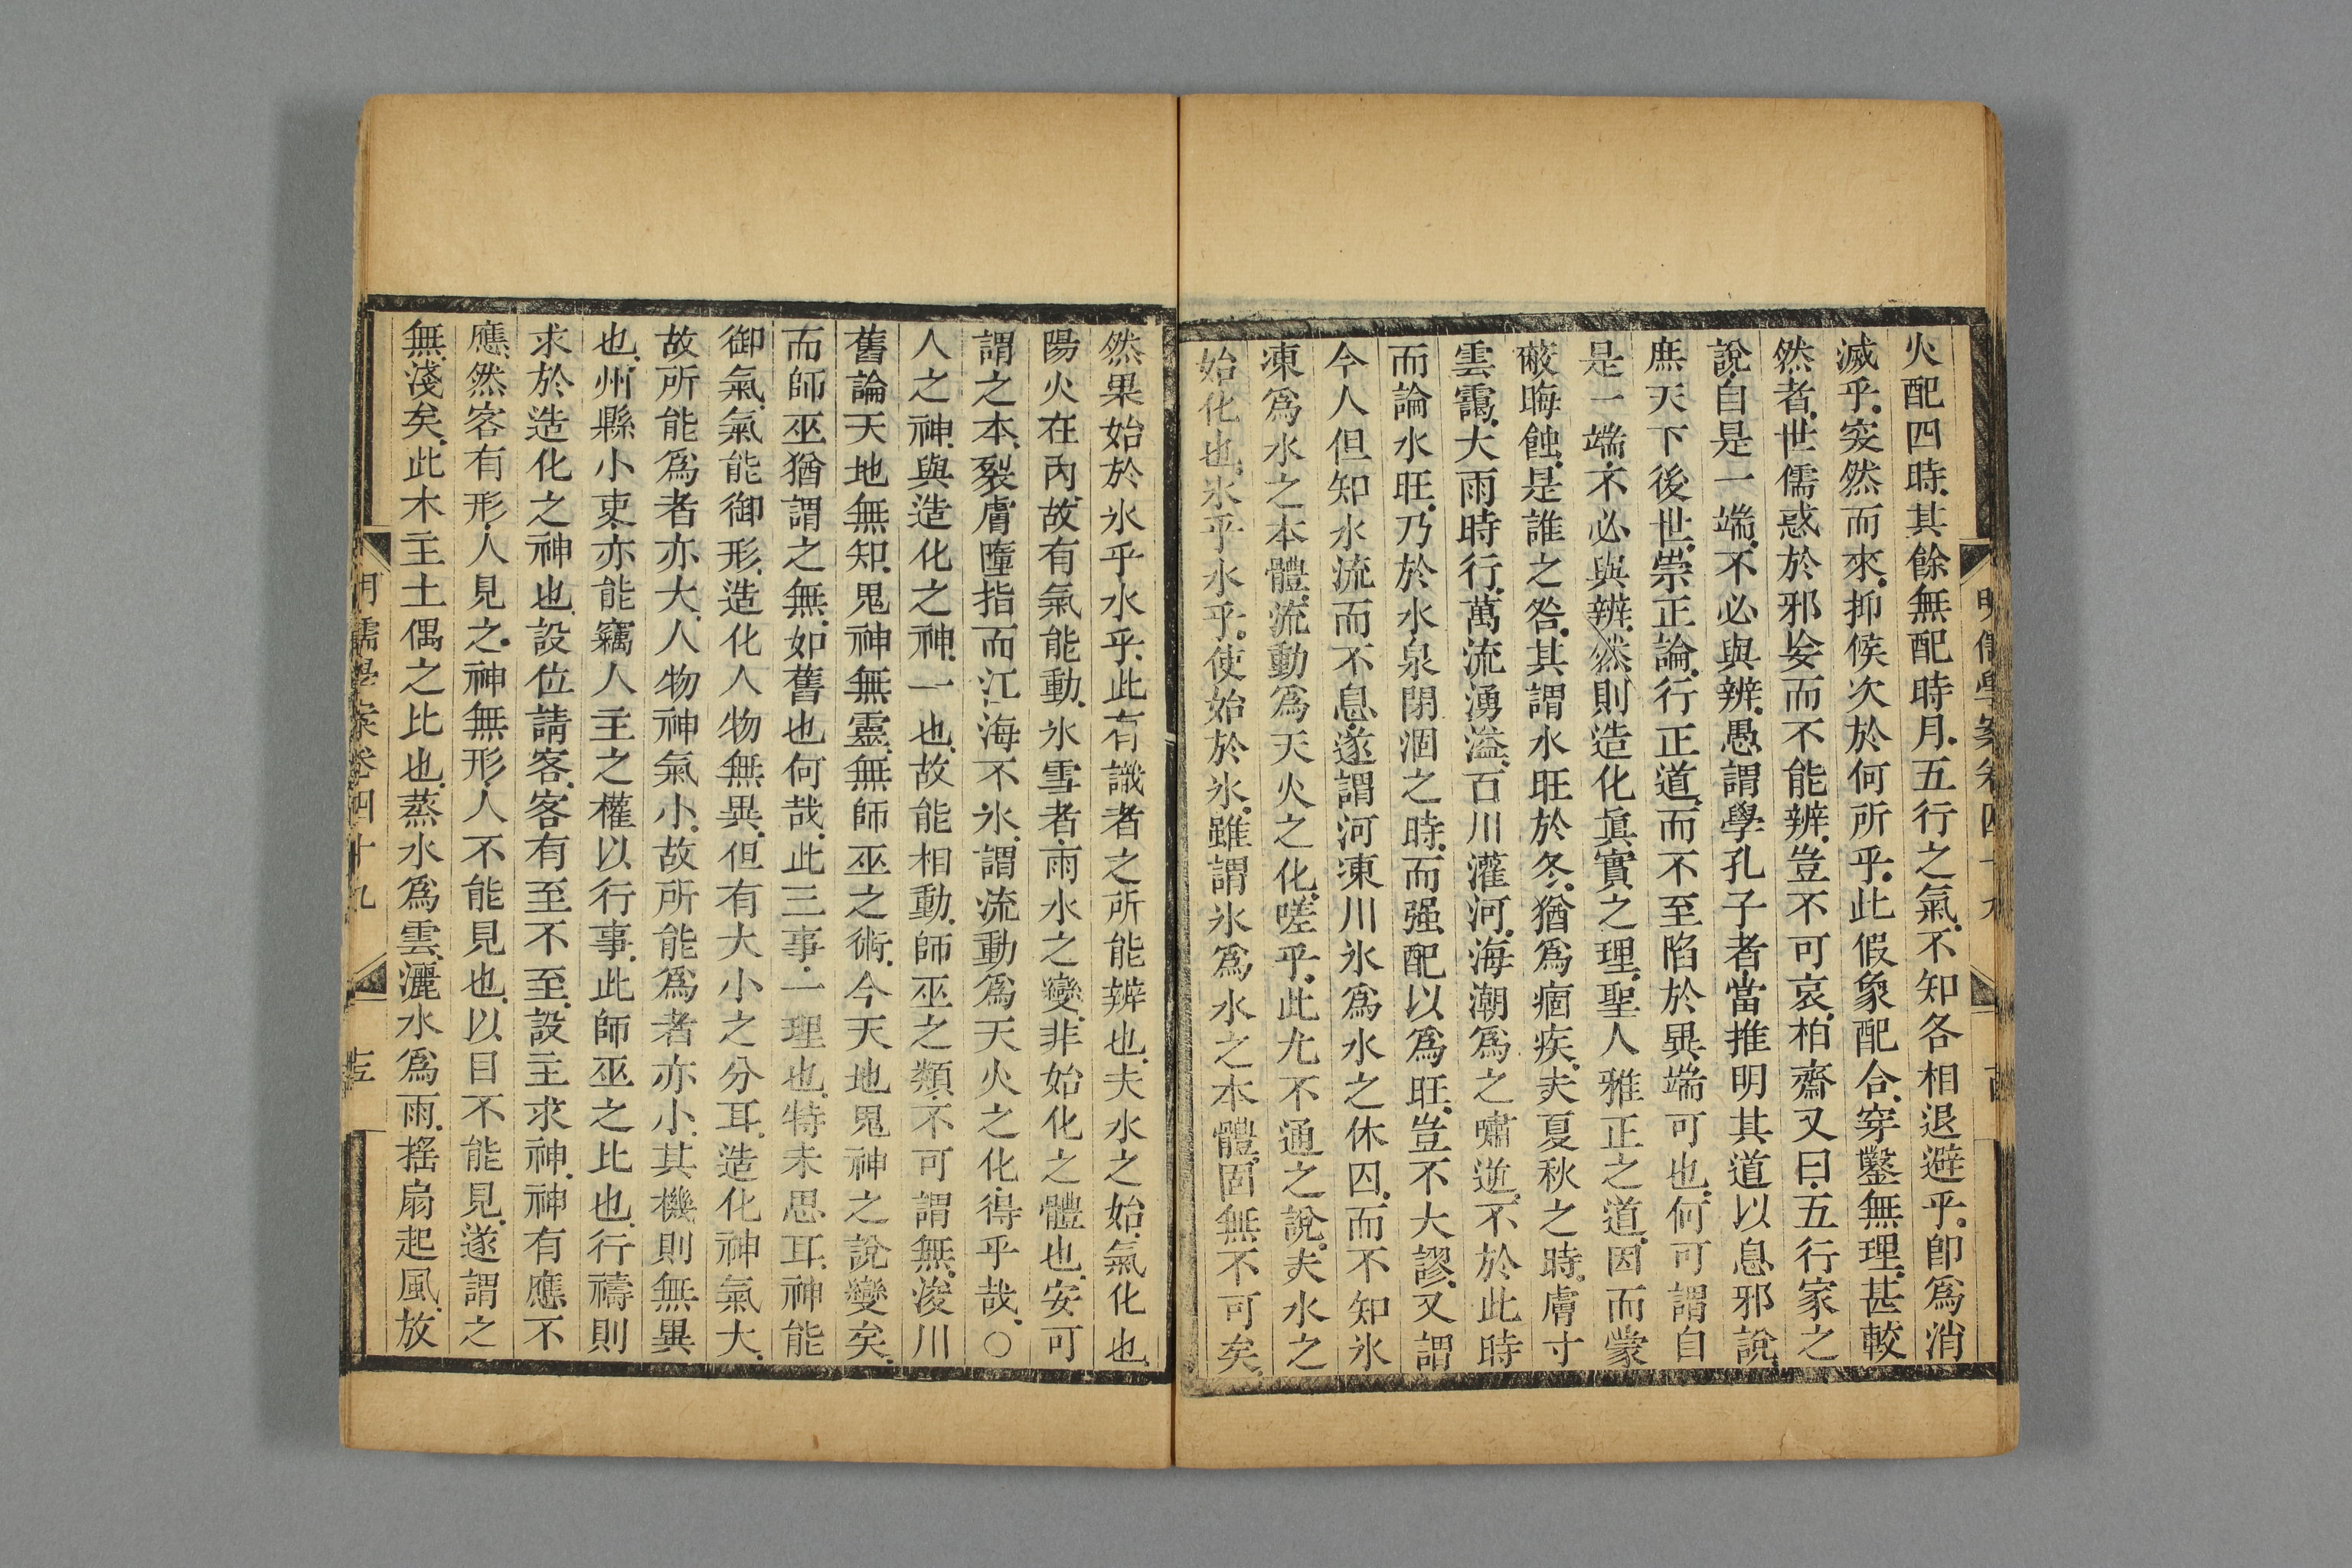 明儒學案卷四十九
火配四時其餘無配時月五行之氣不知各相退避乎卽爲消
滅乎突然而來抑候次於何所乎此假象配合穿鑿無理甚較
然者世儒惑於邪妄而不能辨豈不可哀柏齋又曰五行家之
說自是一端不必與辨愚謂學孔子者當推明其道以息邪說
庶天下後世崇正論行正道而不至陷於異端可也何可謂自
是一端不必與辨然則造化眞實之理聖人雅正之道因而蒙
蔽晦蝕是誰之咎其謂水旺於冬猶爲痼疾夫夏秋之時膚寸
雲靄大雨時行萬流湧溢百川灌河海潮爲之嘯逆不於此時
而論水旺乃於水泉閉涸之時而强配以爲旺豈不大謬又謂
今人但知水流而不息遂謂河凍川氷爲水之休囚而不知氷
凍爲水之本體流動爲天火之化嗟乎此尤不通之說夫水之
始化也氷乎水乎使始於氷雖謂氷爲水之本體固無不可矣
然果始於氷乎水乎此有識者之所能辨也夫水之始氣化也
陽火在內故有氣能動氷雪者雨水之變非始化之體也安可
謂之本裂膚墮指而江海不氷謂流動爲天火之化得乎哉○
人之神與造化之神一也故能相動師巫之類不可謂無浚川
舊論天地無知鬼神無靈無師巫之術今天地鬼神之說變矣
而師巫猶謂之無如舊也何哉此三事一理也特未思耳神能
御氣氣能御形造化人物無異但有大小之分耳造化神氣大
故所能爲者亦大人物神氣小故所能爲者亦小其機則無異
也州縣小吏亦能竊人主之權以行事此師巫之比也行禱則
求於造化之神也設位請客客有至不至設主求神神有應不
應然客有形人見之神無形人不能見也以目不能見遂謂之
無淺矣此木主土偶之比也蒸水爲雲灑水爲雨搖扇起風放
明儒學案卷四十九